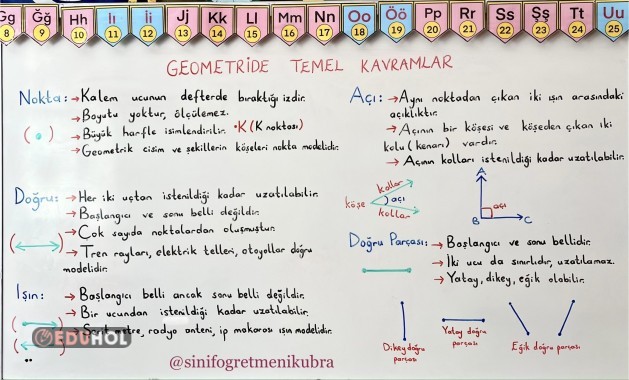 Gg Ğğ Hh Iı İi Jj Kk Ll Mm Nn Oo Öö Pp Rr Ss Şş Tt Uu
8 9 10 11 12 13 14 15 16 17 18 19 20 21 22 23 24 25
GEOMETRİDE TEMEL KAVRAMLAR
Nokta: → Kalem ucunun defterde bıraktığı izdir.
→ Boyutu yoktur, ölçülemez.
→ Büyük harfle isimlendirilir. •K (K noktası)
→ Geometrik cisim ve şekillerin köşeleri nokta modelidir.
Doğru: → Her iki uçtan istenildiği kadar uzatılabilir.
→ Başlangıcı ve sonu belli değildir.
→ Çok sayıda noktalardan oluşmuştur.
→ Tren rayları, elektrik telleri, otoyollar doğru
modelidir.
Işın: → Başlangıcı belli ancak sonu belli değildir.
→ Bir ucundan istenildiği kadar uzatılabilir.
→ radyo anteni, ip makarası ışın modelidir.
EDUHOL
@sinifogretmenikubra
Açı: → Aynı noktadan çıkan iki ışın arasındaki
açıklıktır.
→ Açının bir köşesi ve köşeden çıkan iki
kolu (kenarı) vardır.
→ Açının kolları istenildiği kadar uzatılabilir.
kollar
köşe açı
kollar
A
açı
B C
Doğru Parçası: → Başlangıcı ve sonu bellidir.
→ İki ucu da sınırlıdır, uzatılamaz.
→ Yatay, dikey, eğik olabilir.
Dikey doğru
parçası
Yatay doğru
parçası
Eğik doğru parçası